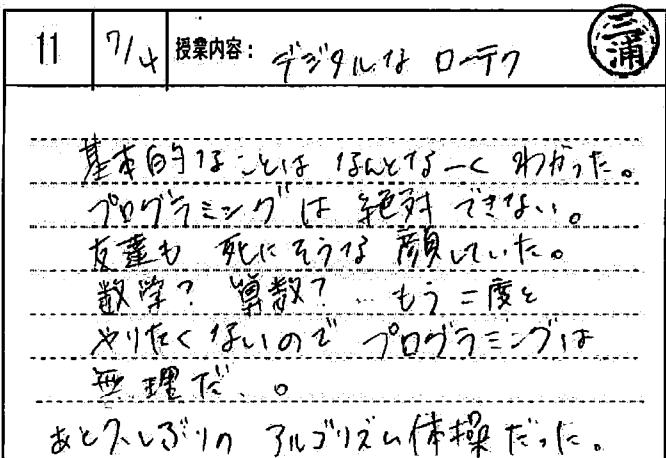 11 7/4 授業内容: デジタルな ローテク 三浦
基本的なことは なんとな〜く わかった。
プログラミングは 絶対 できない。
友達も 死にそうな 顔していた。
数学? 算数? … もう二度と
やりたくないので プログラミングは
無理だ、。
あと久しぶりの アルゴリズム体操 だった。